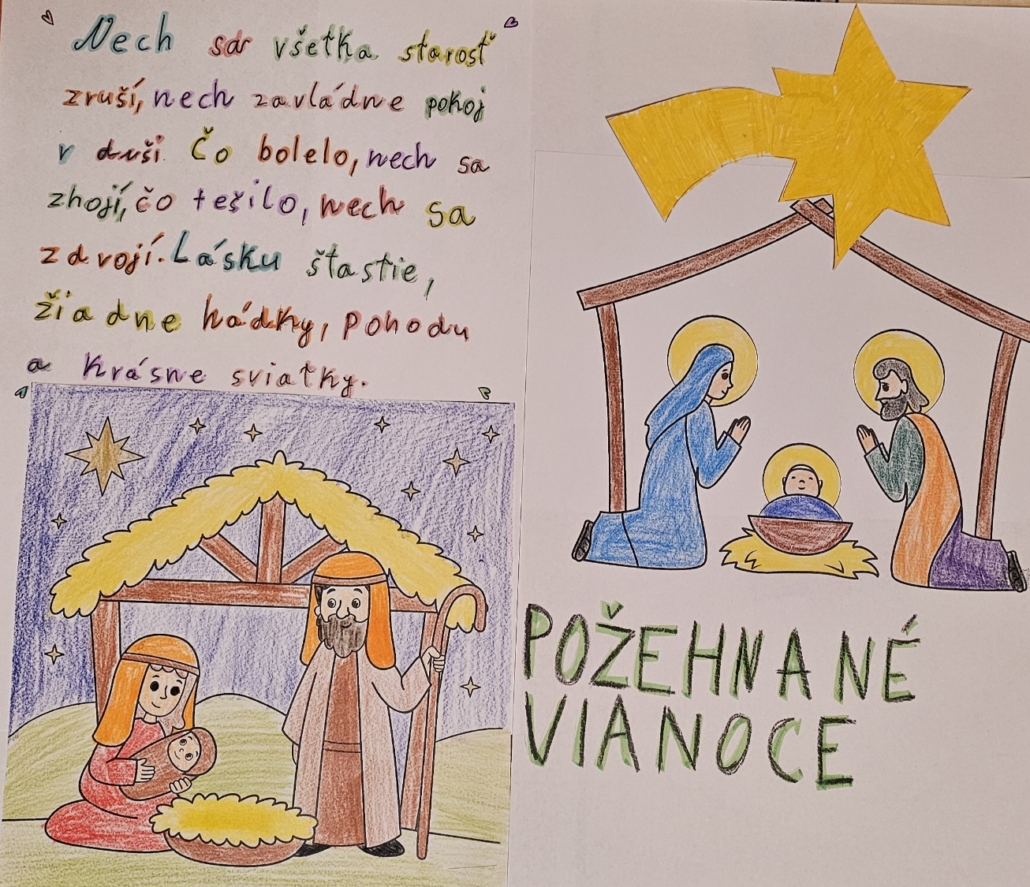 Nech sa všetka starosť
zruší, nech zavládne pokoj
v duši. Čo bolelo, nech sa
zhojí, čo tešilo, nech sa
zdvojí. Lásku šťastie,
žiadne hádky, pohodu
a krásne sviatky.
POŽEHNANÉ
VIANOCE